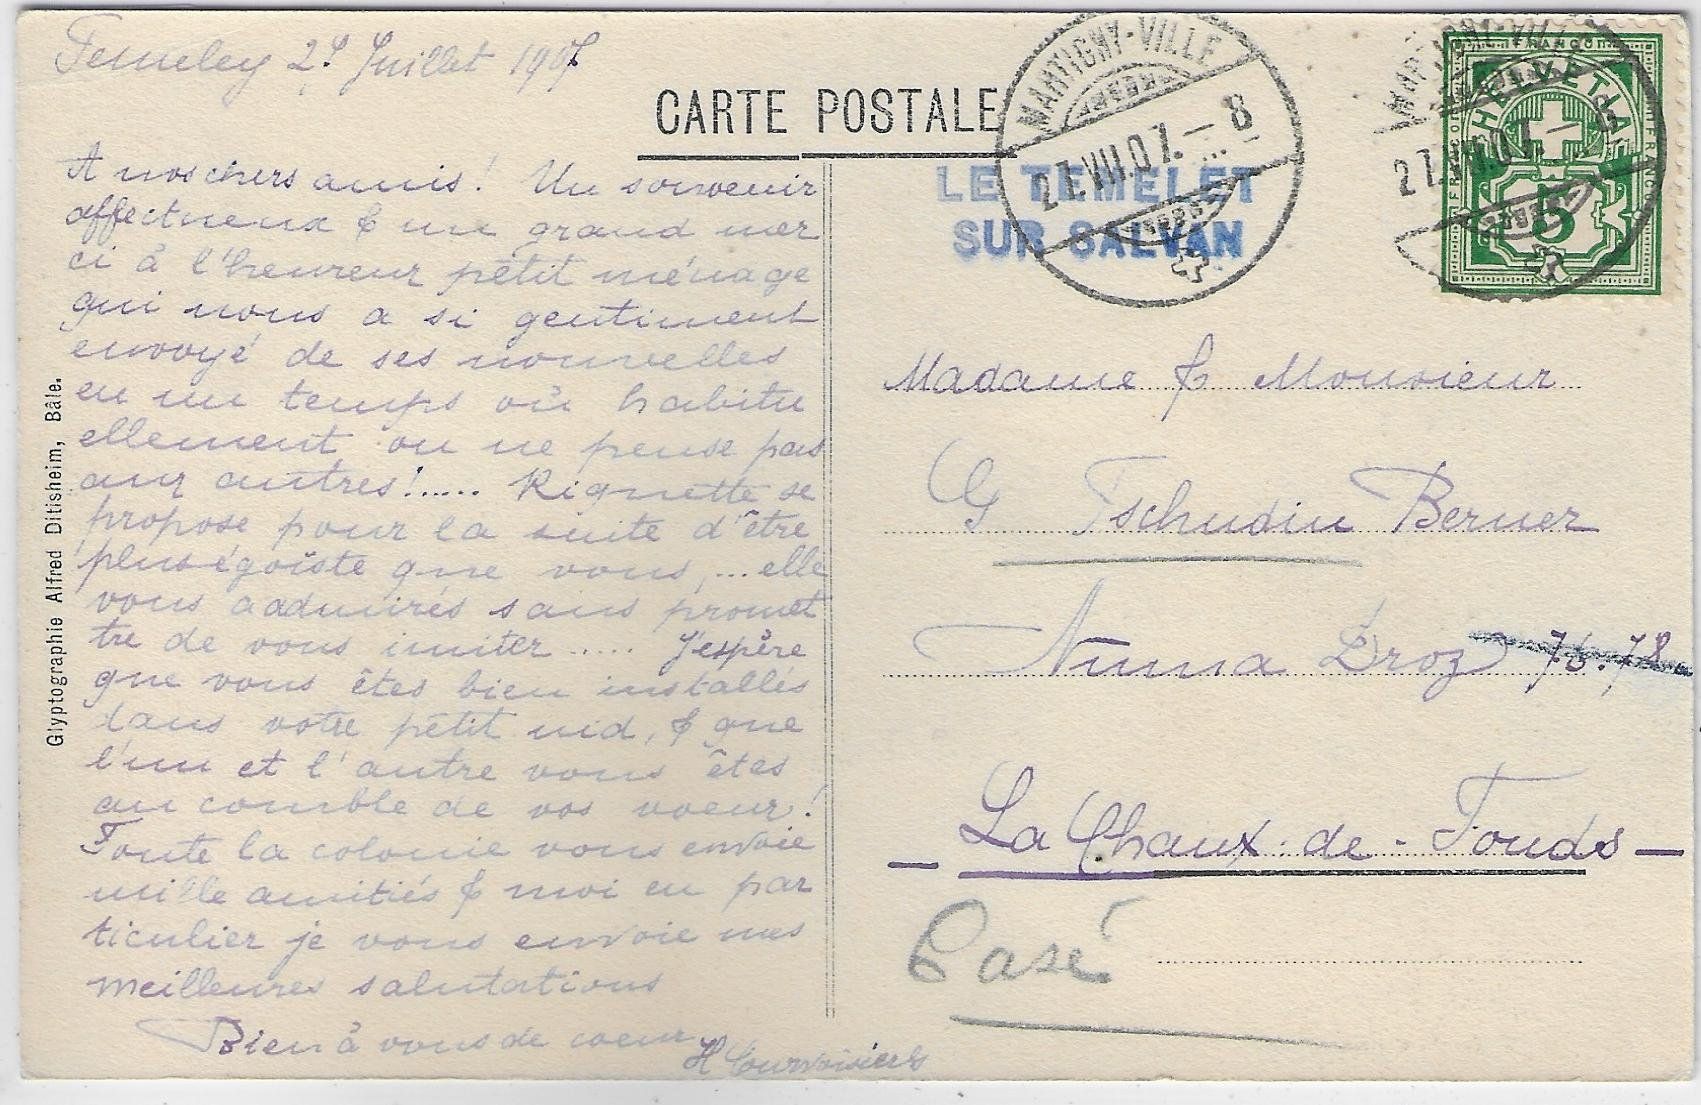 Temeley 27 Juillet 1907
CARTE POSTALE
MARTIGNY-VILLE
27.VII.07.–8
LE TEMELEY
SUR SALVAN
MARTIGNY-VILLE
27.VII.07.–8
FRANCO
HELVETIA
FRANCO
FRANCO
5
A nos chers amis! Un souvenir
affectueux & un grand mer
ci à l'heureux petit ménage
qui nous a si gentiment
envoyé de ses nouvelles
en un temps où habitu
ellement on ne pense pas
aux autres!..... Riquette se
propose pour la suite d'être
plus égoïste que vous,... elle
vous a admirés sans promet
tre de vous imiter ..... J'espère
que vous êtes bien installés
dans votre petit nid, & que
l'un et l'autre vous êtes
au comble de vos voeux!
Toute la colonie vous envoie
mille amitiés & moi en par
ticulier je vous envoie mes
meilleures salutations
Bien à vous de coeur
H Courvoisier
Madame & Monsieur
G Tschudin Berner
Numa Droz 76.78
La Chaux-de-Fonds
Casé
Glyptographie Alfred Ditisheim, Bâle.